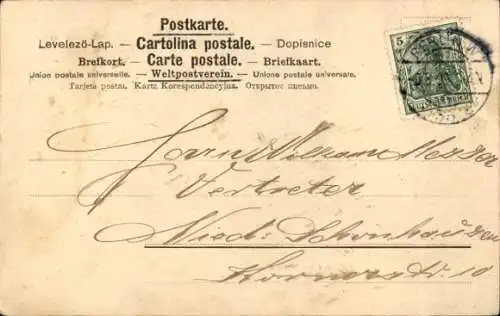 Postkarte.
Levelező-Lap. — Cartolina postale. — Dopisnice
Brefkort. — Carte postale. — Briefkaart.
Union postale universelle. — Weltpostverein. — Unione postale universale.
Tarjeta postal. Karta Korespondencyjna. Открытое письмо.
5
BERLIN
Herrn Wilhelm Messer
Vertreter
Nied. Schönhausen
str. 10